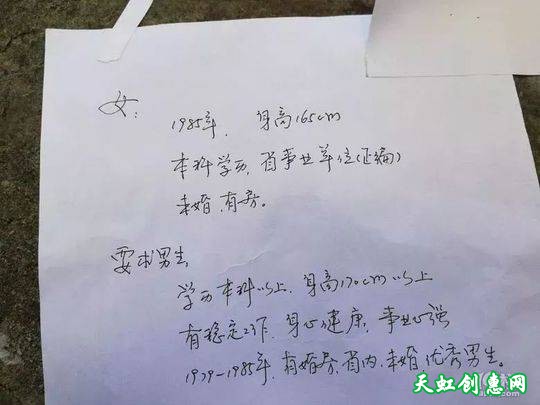 女:
1985年, 身高165cm
本科学历, 省事业单位(正编)
未婚, 有房。
要求男生
学历本科以上, 身高170cm以上
有稳定工作, 身心健康, 事业心强
1979-1985年, 有婚房, 省内, 未婚优秀男生。
天虹创惠网